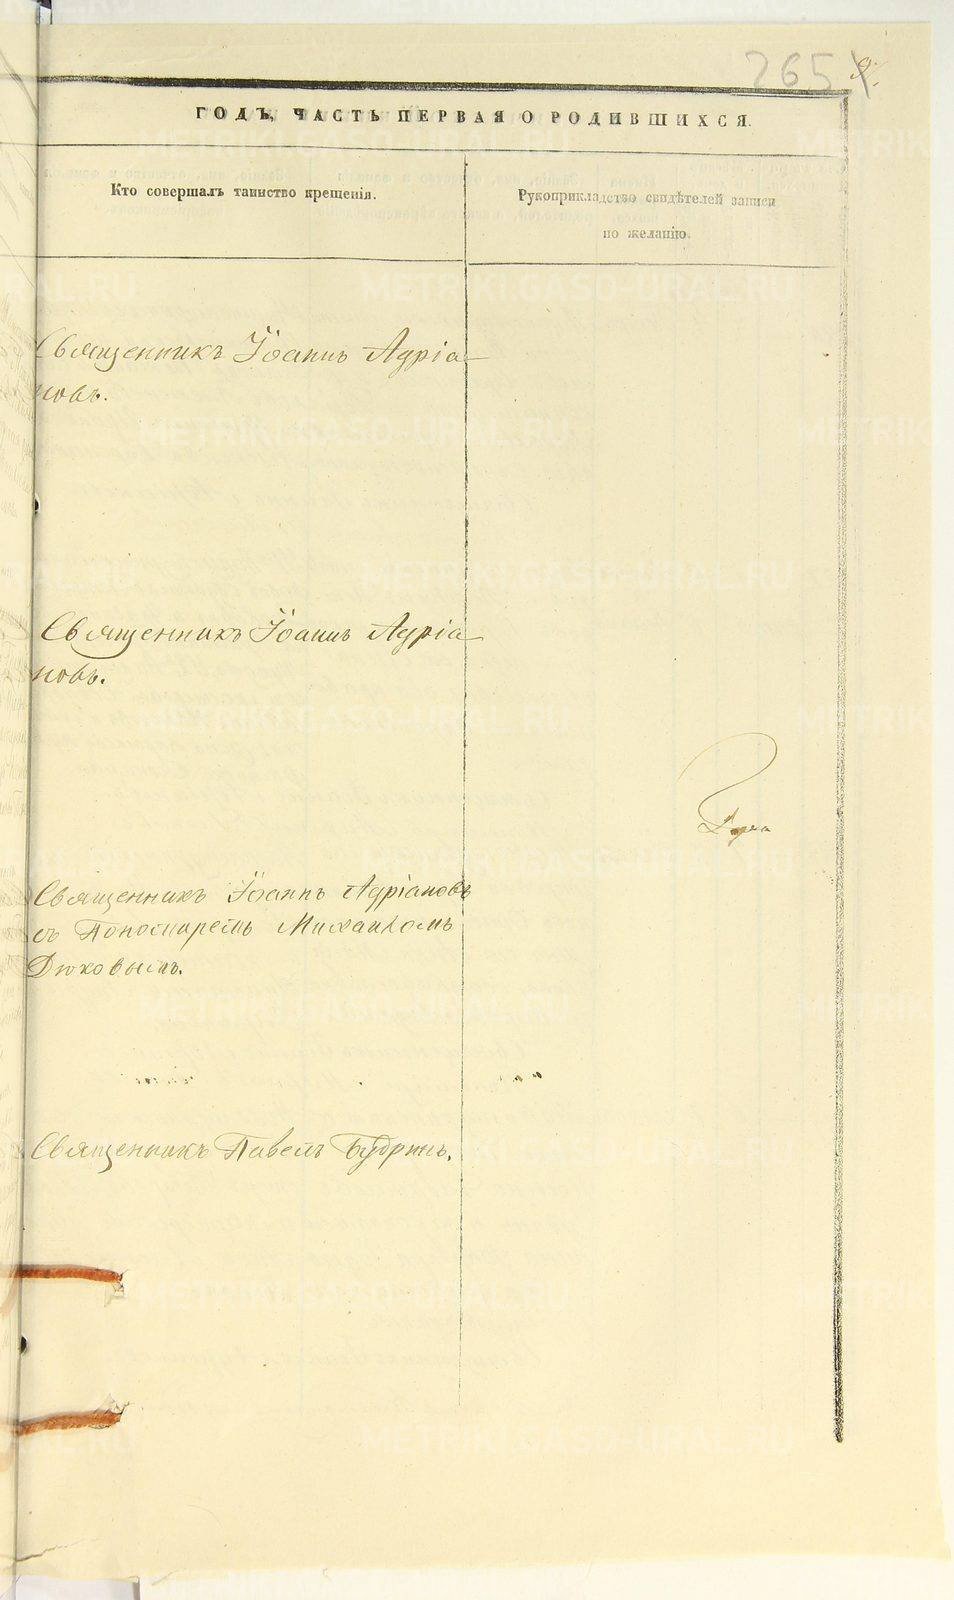 265
ГОДЪ, ЧАСТЬ ПЕРВАЯ О РОДИВШИХСЯ.
Кто совершалъ таинство крещенія.
Рукоприкладство свидѣтелей записи
по желанію.
Священникъ Іоаннъ Адріа-
новъ.
Священникъ Іоаннъ Адріа-
новъ.
Священникъ Іоаннъ Адріановъ
съ Пономаремъ Михаиломъ
Дюковымъ.
Священникъ Павелъ Будринъ.
METRIKI.GASO-URAL.RU